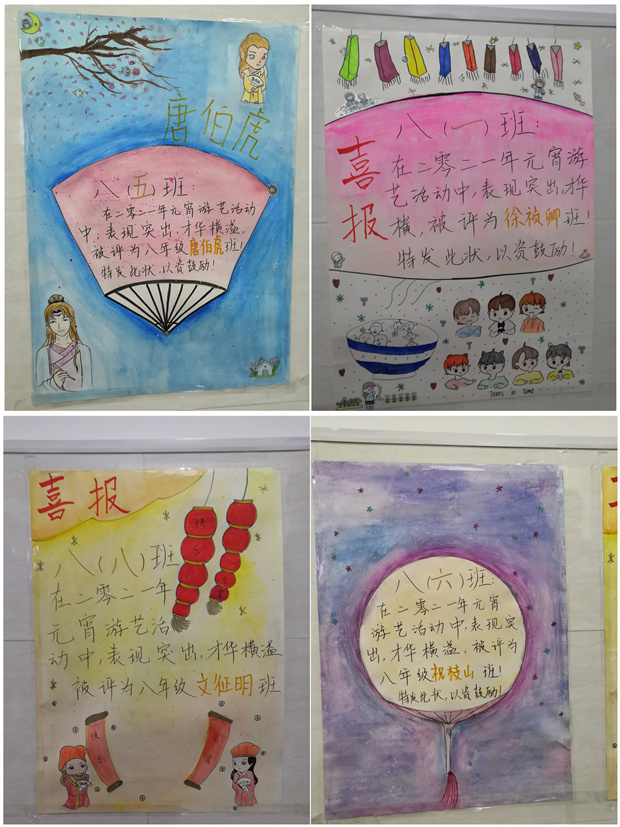 唐伯虎
八（五）班：
在二零二一年元宵游艺活动
中，表现突出，才华横溢，
被评为八年级唐伯虎班！
特发此状，以资鼓励！
喜报
八（一）班：
在二零二一年元宵游
艺活动中，表现突出，才华
横，被评为徐祯卿班！
特发此状，以资鼓励！
喜报
八（八）班
在二零二一年
元宵游艺活
动中，表现突出，才华横溢
被评为八年级文征明班
快乐
八（六）班：
在二零二一年元宵
游艺活动中，表现突
出，才华横溢，被评为
八年级祝枝山班！
特发此状，以资鼓励！